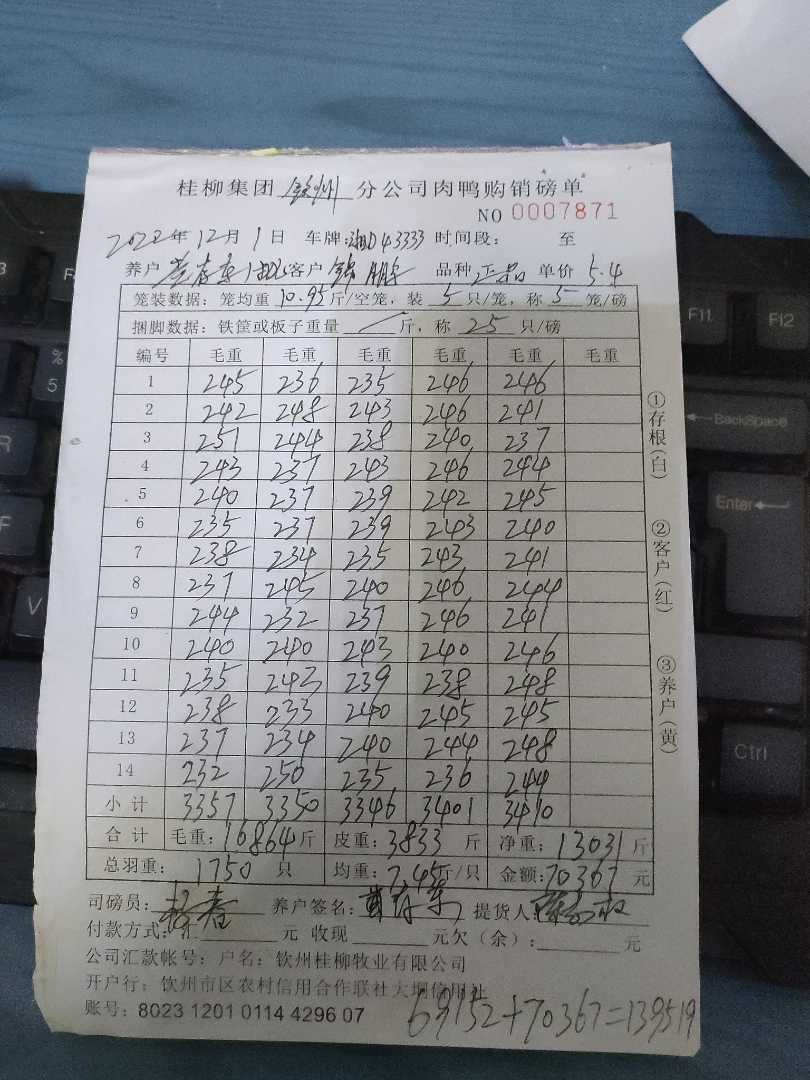 桂柳集团 钦州 分公司肉鸭购销磅单
NO 0007871
2022年12月1日 车牌:湘D43333 时间段: 至
养户 客户 锦鹏 品种 正品 单价 5.4
笼装数据: 笼均重 10.95 斤/空笼, 装 5 只/笼, 称 5 笼/磅
捆脚数据: 铁筐或板子重量 / 斤, 称 25 只/磅
编号 毛重 毛重 毛重 毛重 毛重 毛重
1 245 236 235 246 246
2 242 248 243 246 241
3 251 244 238 240 237
4 243 237 243 246 244
5 240 237 239 242 245
6 235 237 239 243 240
7 238 234 235 243 241
8 237 245 240 246 244
9 244 232 237 246 241
10 240 240 243 240 246
11 235 243 239 238 248
12 238 233 240 245 245
13 237 234 240 244 248
14 232 250 235 236 244
小计 3357 3350 3346 3401 3410
合计 毛重: 16864 斤 皮重: 3833 斤 净重: 13031 斤
总羽重: 1750 只 均重: 7.45 斤/只 金额: 70367 元
司磅员: 杨春 养户签名: 提货人:
付款方式: 汇 元 收现 元欠(余): 元
公司汇款帐号: 户名: 钦州桂柳牧业有限公司
开户行: 钦州市区农村信用合作联社大垌信用社
账号: 8023 1201 0114 4296 07
69152+70367=139519
①存根(白)
②客户(红)
③养户(黄)
%
5
R
F
V
F11
F12
BackSpace
Enter
Ctrl